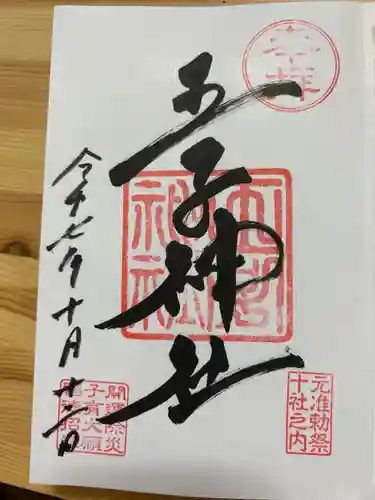 奉拝
元准勅祭
十社之内
王子神社
王子
神社
令和七年十月
開運除災
子育大願